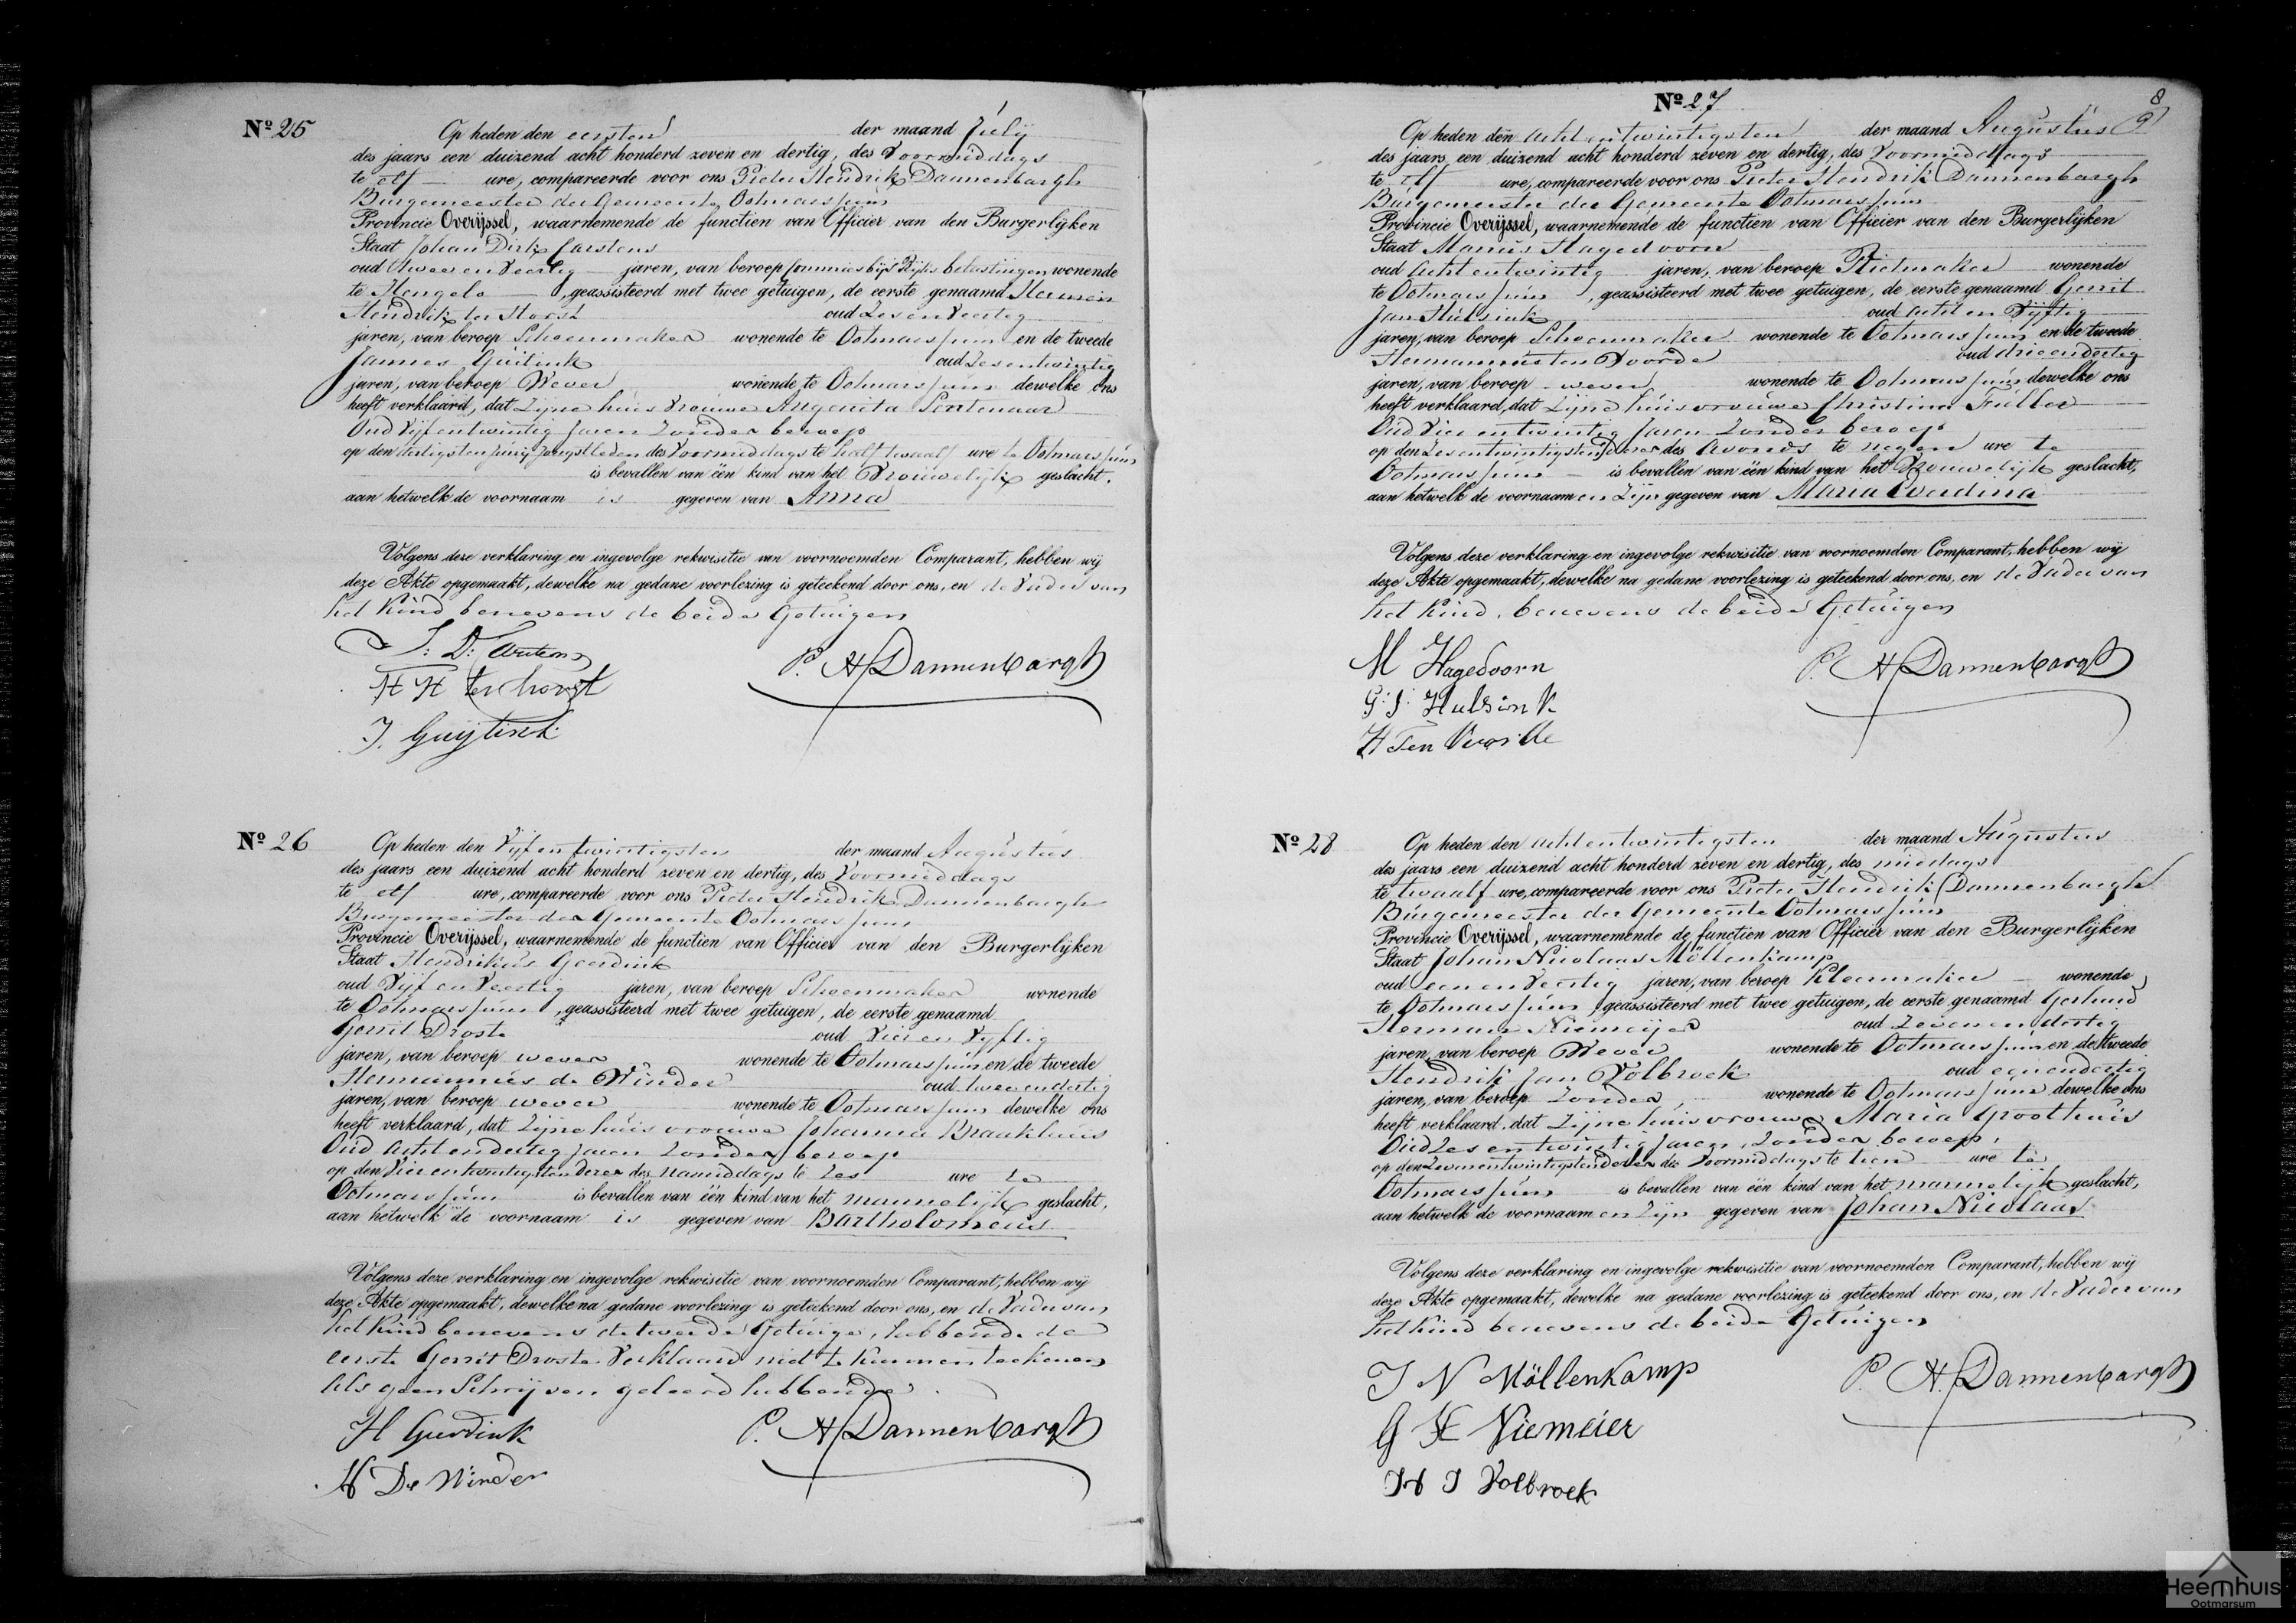 Nº 25
Op heden den eersten der maand Julij
des jaars een duizend acht honderd zeven en dertig, des Voormiddags
te elf ure, compareerde voor ons Pieter Hendrik Dannenbargh
Burgemeester der Gemeente Ootmarssum
Provincie Overijssel, waarnemende de functien van Officier van den Burgerlijken
Staat Johan Dirk Carstens
oud twee en Veertig jaren, van beroep Commies bij's Rijks belastingen wonende
te Hengelo, geassisteerd met twee getuigen, de eerste genaamd Hermen
Hendrik ter Horst oud Zes en Veertig
jaren, van beroep Schoenmaker wonende te Ootmarssum en de tweede
Jannes Guitink oud Zesentwintig
jaren, van beroep Wever wonende te Ootmarssum dewelke ons
heeft verklaard, dat Zijne huis Vrouwe Angenita Sentenaar
Oud Vijfentwintig Jaren Zonder beroep
op den dertigsten Junij Jongstleden des Voormiddags te half twaalf ure te Ootmarssum
is bevallen van één kind van het Vrouwelijk geslacht,
aan hetwelk de voornaam is gegeven van Anna
Volgens deze verklaring en ingevolge rekwisitie van voornoemden Comparant, hebben wij
deze Akte opgemaakt, dewelke na gedane voorlezing is geteekend door ons, en de Vader van
het Kind benevens de beide Getuigen
J. D. Carstens
H H ter horst
P. H Dannenbargh
J. Guijtink
Nº 26
Op heden den Vijf en twintigsten der maand Augustus
des jaars een duizend acht honderd zeven en dertig, des Voormiddags
te elf ure, compareerde voor ons Pieter Hendrik Dannenbargh
Burgemeester der Gemeente Ootmarssum
Provincie Overijssel, waarnemende de functien van Officier van den Burgerlijken
Staat Hendrikus Geerdink
oud Vijf en Veertig jaren, van beroep Schoenmaker wonende
te Ootmarssum, geassisteerd met twee getuigen, de eerste genaamd
Gerrit Droste oud Vier en Vyftig
jaren, van beroep wever wonende te Ootmarssum en de tweede
Hermannus de Winder oud tweeendertig
jaren, van beroep wever wonende te Ootmarssum dewelke ons
heeft verklaard, dat Zijne huis vrouwe Johanna Braakhuis
Oud Acht endertig Jaren Zonder beroep
op den Vier entwintigsten dezer des namiddags te Zes ure te
Ootmarssum is bevallen van één kind van het mannelijk geslacht,
aan hetwelk de voornaam is gegeven van Bartholomeus
Volgens deze verklaring en ingevolge rekwisitie van voornoemden Comparant, hebben wij
deze Akte opgemaakt, dewelke na gedane voorlezing is geteekend door ons, en de Vader van
het Kind benevens de tweede Getuige, hebbende de
eerste Gerrit Droste Verklaard niet te kunnen teekenen
Als geen Schrijven geleerd hebbende
H Geerdink
P. H Dannenbargh
H De Winder
Nº 27
8
9
Op heden den acht entwintigsten der maand Augustus
des jaars een duizend acht honderd zeven en dertig, des Voormiddags
te elf ure, compareerde voor ons Pieter Hendrik Dannenbargh
Burgemeester der Gemeente Ootmarssum
Provincie Overijssel, waarnemende de functien van Officier van den Burgerlijken
Staat Manus Hagedoorn
oud Acht entwintig jaren, van beroep Rietmaker wonende
te Ootmarssum, geassisteerd met twee getuigen, de eerste genaamd Gerrit
Jan Hulsink oud acht en Vijftig
jaren, van beroep Schoenmaker wonende te Ootmarssum en de tweede
Hermannus ten Voorde oud drieendertig
jaren, van beroep wever wonende te Ootmarssum dewelke ons
heeft verklaard, dat Zijne huisvrouwe Christina Fuller
Oud Vier entwintig Jaren Zonder beroep
op den Zesentwintigsten dezer des Avonds te negen ure te
Ootmarssum is bevallen van één kind van het Vrouwelijk geslacht,
aan hetwelk de voornaamen Zijn gegeven van Maria Everdina
Volgens deze verklaring en ingevolge rekwisitie van voornoemden Comparant, hebben wij
deze Akte opgemaakt, dewelke na gedane voorlezing is geteekend door ons, en de Vader van
het Kind, benevens de beide Getuigen
M Hagedoorn
P. H Dannenbargh
G. J. Hulsink
H Ten Voorde
Nº 28
Op heden den acht entwintigsten der maand Augustus
des jaars een duizend acht honderd zeven en dertig, des middags
te twaalf ure, compareerde voor ons Pieter Hendrik Dannenbargh
Burgemeester der Gemeente Ootmarssum
Provincie Overijssel, waarnemende de functien van Officier van den Burgerlijken
Staat Johan Nicolaas Möllenkamp
oud een en Veertig jaren, van beroep Kleermaker wonende
te Ootmarssum, geassisteerd met twee getuigen, de eerste genaamd Gerhard
Hermans Niemeijer oud Zeven en dertig
jaren, van beroep Wever wonende te Ootmarssum en de tweede
Hendrik Jan Volbroek oud eenendertig
jaren, van beroep Zonder, wonende te Ootmarssum dewelke ons
heeft verklaard, dat Zijne huisvrouwe Maria Groothuis
Oud Zes entwintig Jaren, Zonder beroep,
op den Zevenentwintigsten dezer des Voormiddags te tien ure te
Ootmarssum is bevallen van één kind van het mannelijk geslacht,
aan hetwelk de voornaamen Zijn gegeven van Johan Nicolaas
Volgens deze verklaring en ingevolge rekwisitie van voornoemden Comparant, hebben wij
deze Akte opgemaakt, dewelke na gedane voorlezing is geteekend door ons, en de Vader van
het Kind benevens de beide Getuigen
J N Möllenkamp
P. H. Dannenbargh
G H Niemeier
H J Volbroek
Heemhuis
Ootmarsum